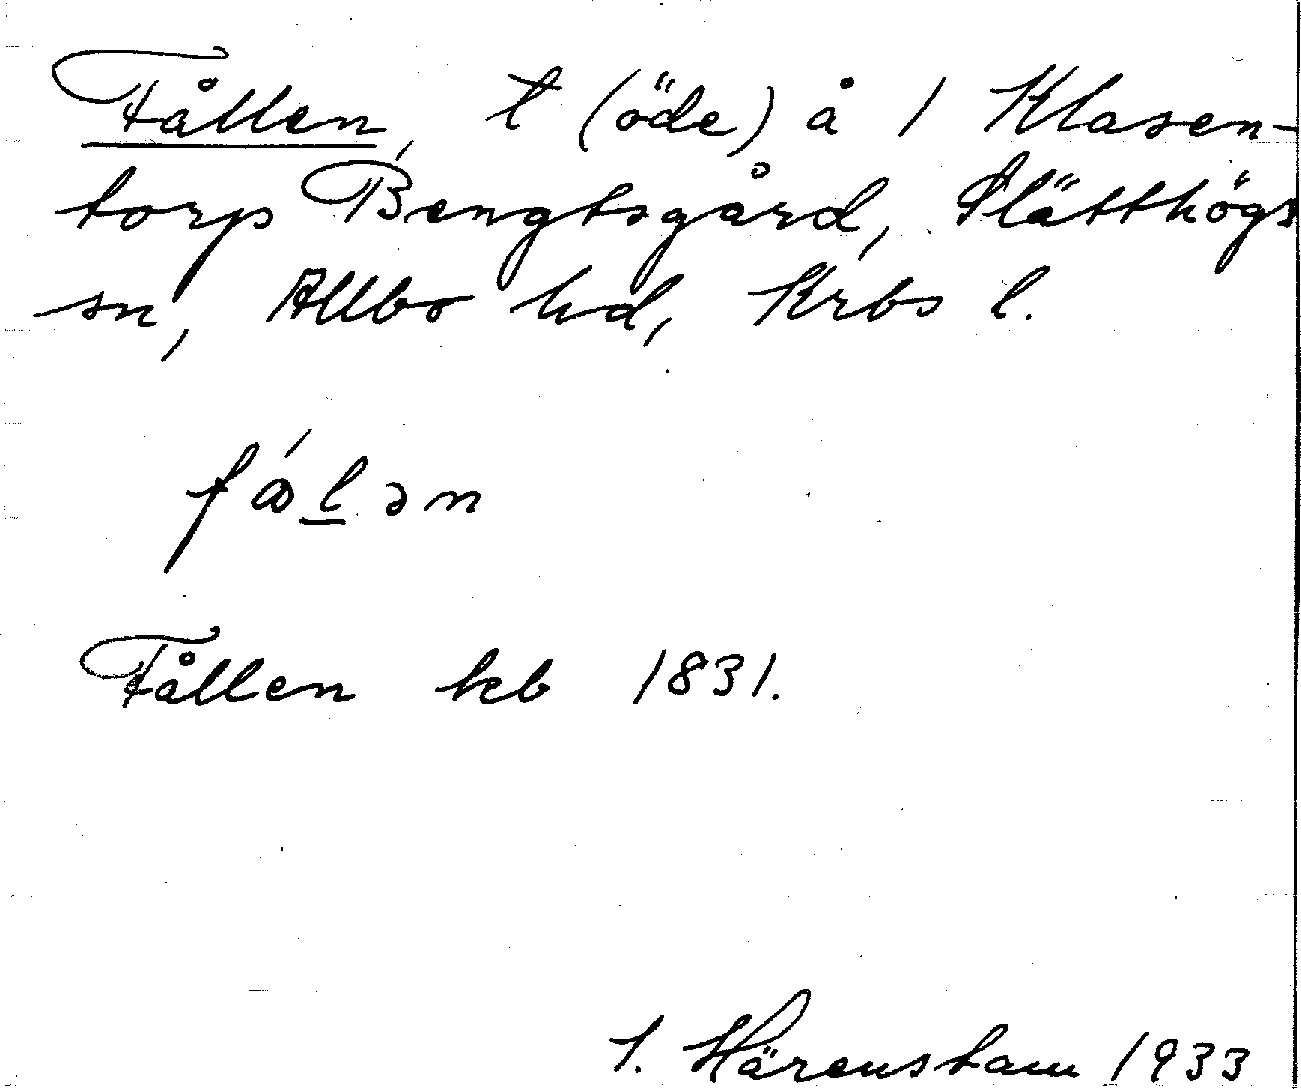 Fållen, t (öde) å 1 Klasen-
torp Bengtsgård, Slätthögs
sn, Allbo hd, Krbs l.
Fållen kb 1831.
1933